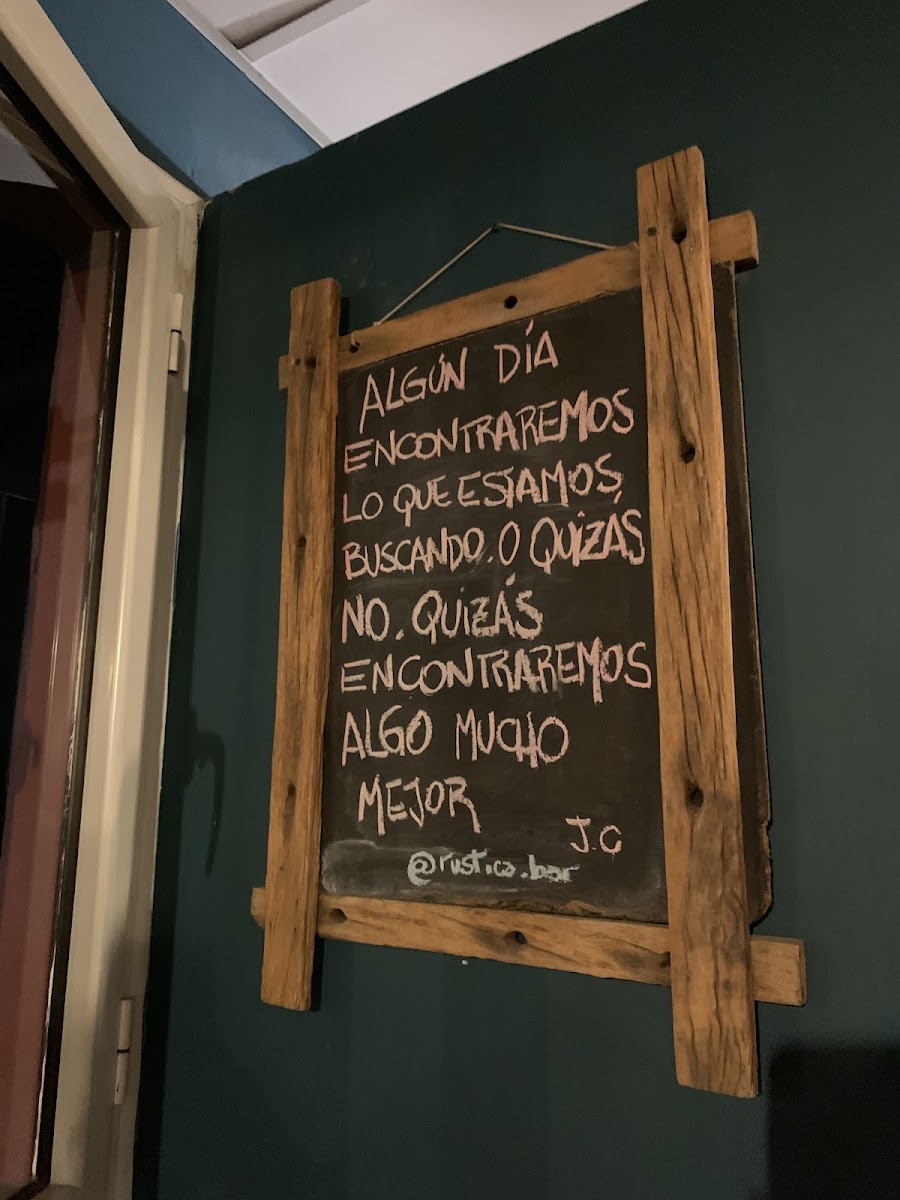 ALGÚN DÍA
ENCONTRAREMOS
LO QUE ESTAMOS
BUSCANDO. O QUIZÁS
NO. QUIZÁS
ENCONTRAREMOS
ALGO MUCHO
MEJOR
J.C
@rustica.bar